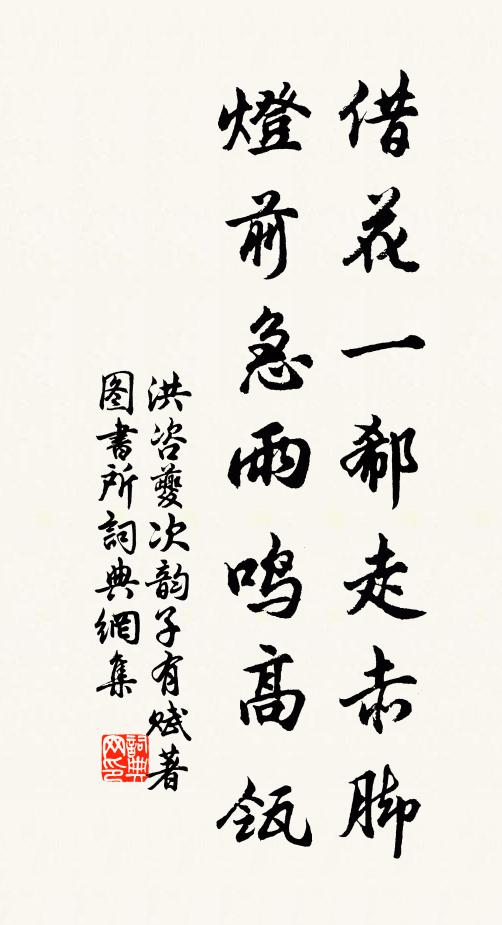 借花一郗走赤脚
燈前急雨鳴高瓴
洪咨夔次韵子有赋著
图書所詞典網集
詞典网印